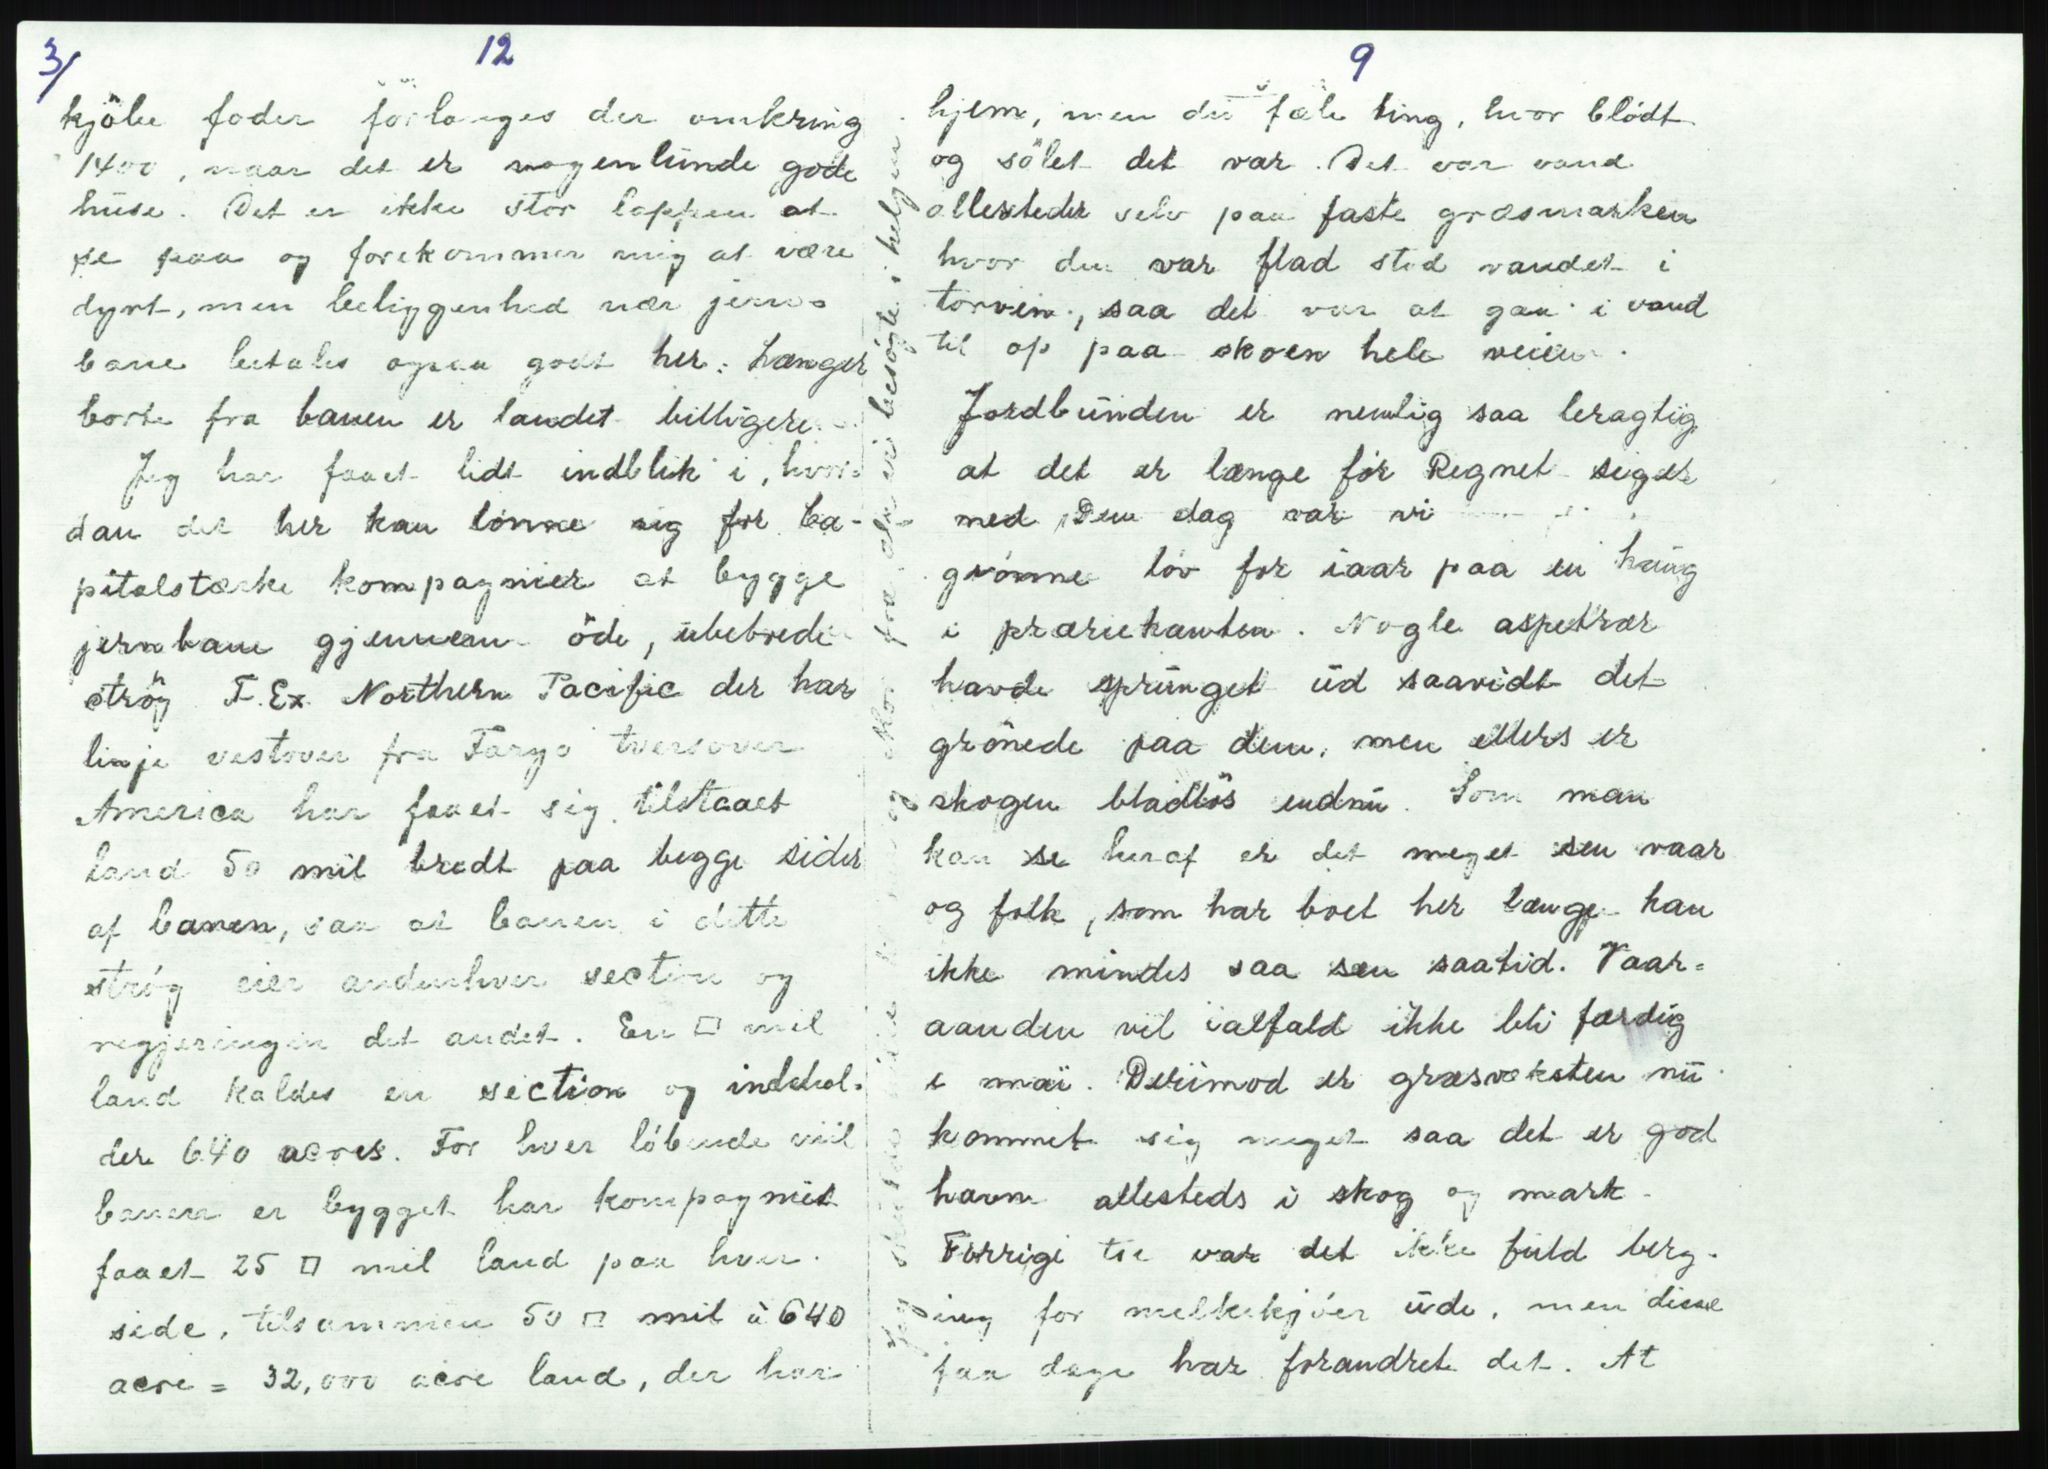 3/
12
kjöbe foder forlanges der omkring
1400, naar det er nogenlunde gode
huse. Det er ikke stor lappen at
se paa og forekommer mig at være
dyrt, men beliggenhed nær jern=
bane betales ogsaa godt her. Længer
borte fra banen er landet billigere
Jeg har faaet lidt indblik i, hvor=
dan det her kan lönne sig for ka-
pitalstærke kompagnier at bygge
jernbane gjennem öde, ubeboede
strög F. Ex. Northern Pacific der har
linje vestover fra Fargo tversover
America har faaet sig tilstaaet
land 50 mil bredt paa begge sider
af banen, saa at banen i dette
strög eier andenhver section og
regjeringen det andet. En □ mil
land kaldes en section og indehol-
der 640 acres. For hver löbende mil
banen er bygget har kompagniet
faaet 25 □ mil land paa hver
side, tilsammen 50 □ mil à 640
acre = 32,000 acre land, der har
9
hjem, men du fæle ting, hvor blödt
og sölet det var. Det var vand
allesteder selv paa faste græsmarken
hvor den var flad stod vandet i
torven, saa det var at gaa i vand
til op paa skoen hele veien.
Jordbunden er nemlig saa leragtig
at det er længe för Regnet siger
ned. Den dag var vi
grönne löv for iaar paa en haug
i præriekanten. Nogle aspetrær
havde sprunget ud saavidt det
grönede paa dem, men ellers er
skogen bladlös endnu. Som man
kan se heraf er det meget sen vaar
og folk, som har boet her længe kan
ikke mindes saa sen saatid. Vaar=
aanden vil ialfald ikke bli færdig
i mai. Derimod er græsveksten nu
kommet sig meget saa det er god
havn allesteds i skog og mark.
Forrige tie var det ikke fuld berg-
ing for melkekjöer ude, men disse
faa dage har forandret det. At
besögte i helgen